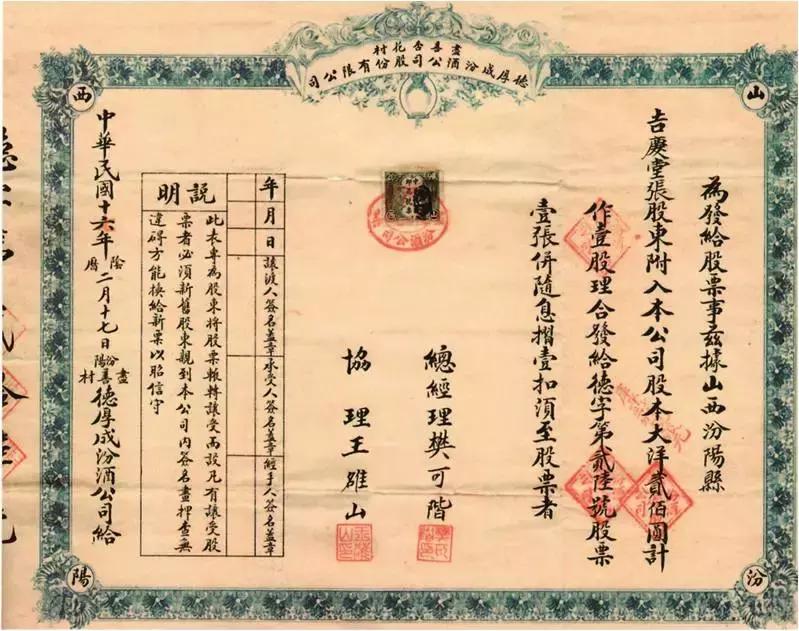 盡善杏花村
德厚成汾酒公司股份有限公司
山
西
汾
陽
為發給股票事茲據山西汾陽縣
吉慶堂張股東附入本公司股本大洋貳佰圓計
作壹股理合發給德字第貳陸號股票
壹張併隨息摺壹扣須至股票者
總經理樊可階
協理王雒山
汾酒公司
年月日
讓渡人簽名蓋章
承受人簽名蓋章
經手人簽名蓋章
說明
此表專為股東將股票輾轉讓受而設凡有讓受股
票者必須新舊股東親到本公司内簽名畫押查無
違碍方能換給新票以昭信守
中華民國十六年陰曆二月十七日汾陽盡善村德厚成汾酒公司給